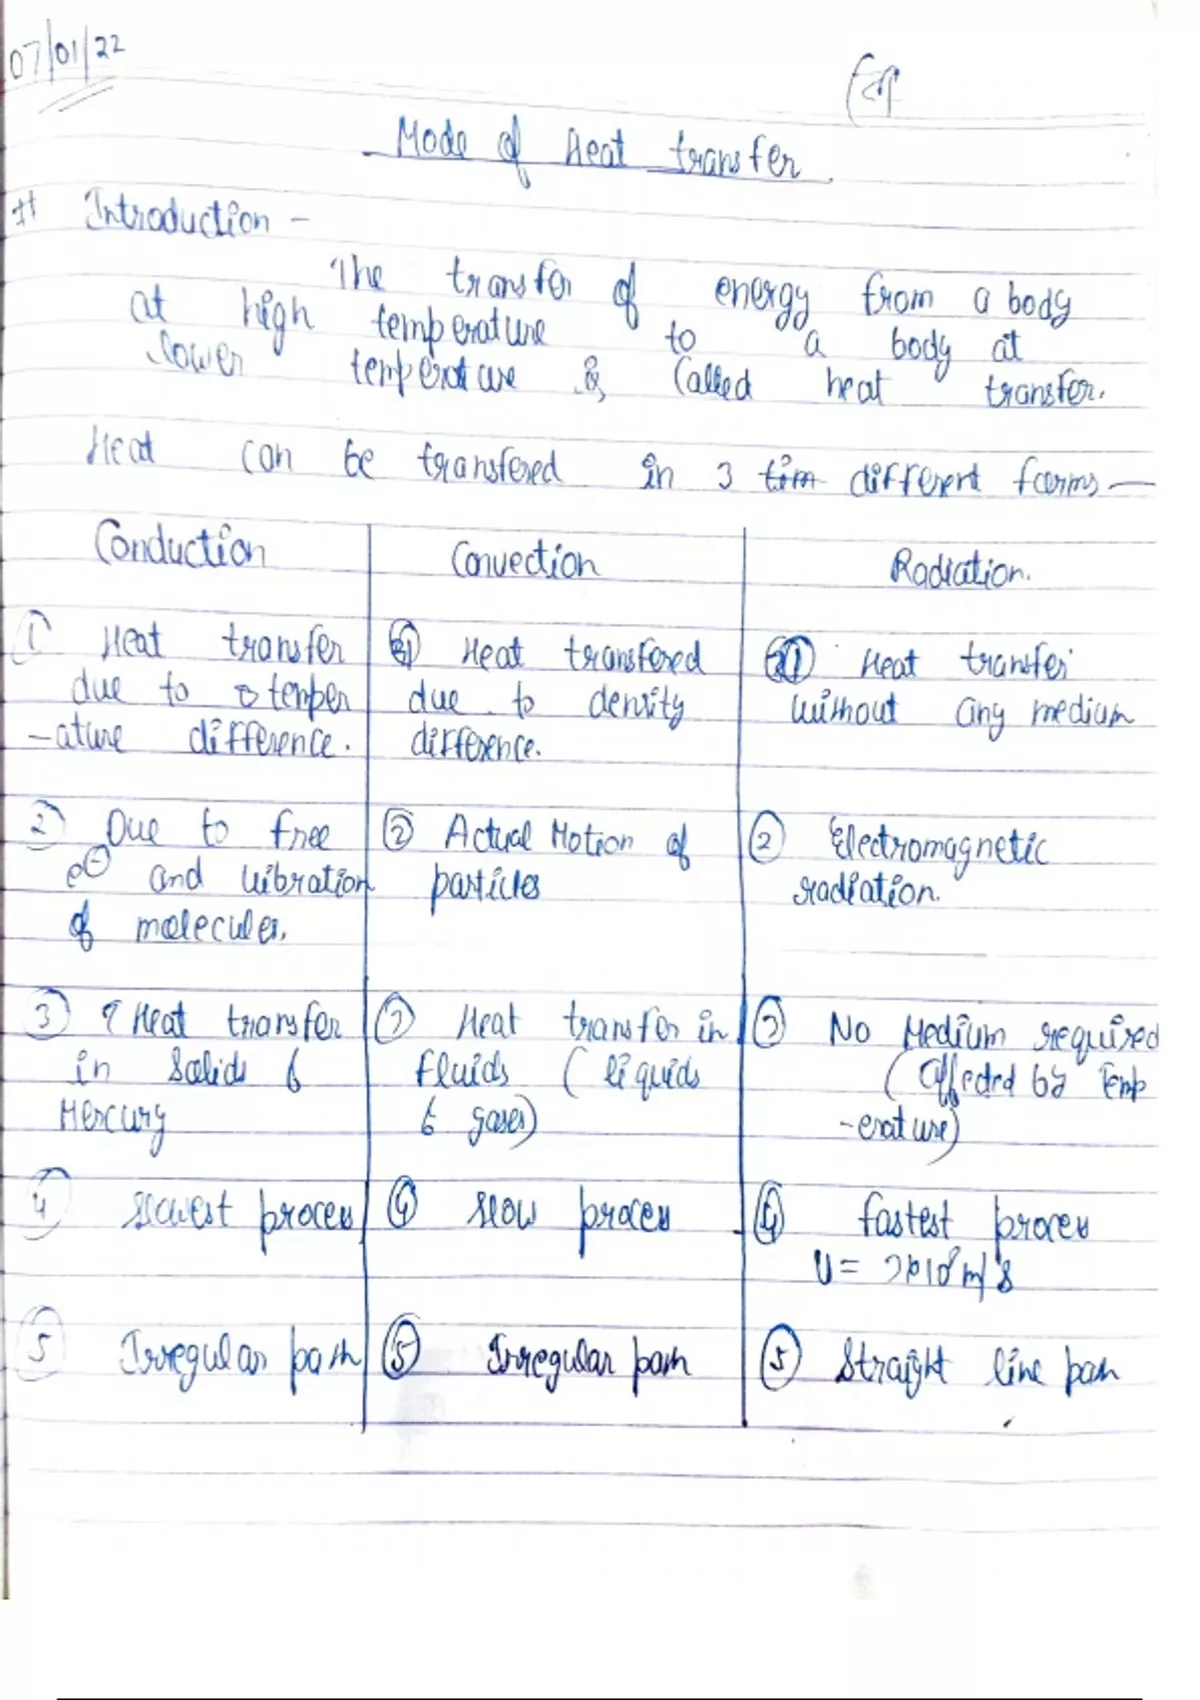 07/01/22
Mode of Heat transfer
# Introduction -
The transfer of energy from a body
at high temperature to a body at
lower temperature is called heat transfer.
Heat can be transfered in 3 different forms —
Conduction
Convection
Radiation.
① Heat transfer
due to temper
-ature difference.
② Due to free
e⊖ and vibration
of molecules.
③ Heat transfer
in Solids &
Mercury
④ Slowest process
⑤ Irregular path
① Heat transfered
due to density
difference.
② Actual Motion of
particles
③ Heat transfer in
fluids (liquids
& gases)
④ Slow process
⑤ Irregular path
① Heat transfer
without any medium
② Electromagnetic
radiation.
③ No Medium required
(Affected by Temp
-erature)
④ fastest process
V = 3×10⁸ m/s
⑤ Straight line path